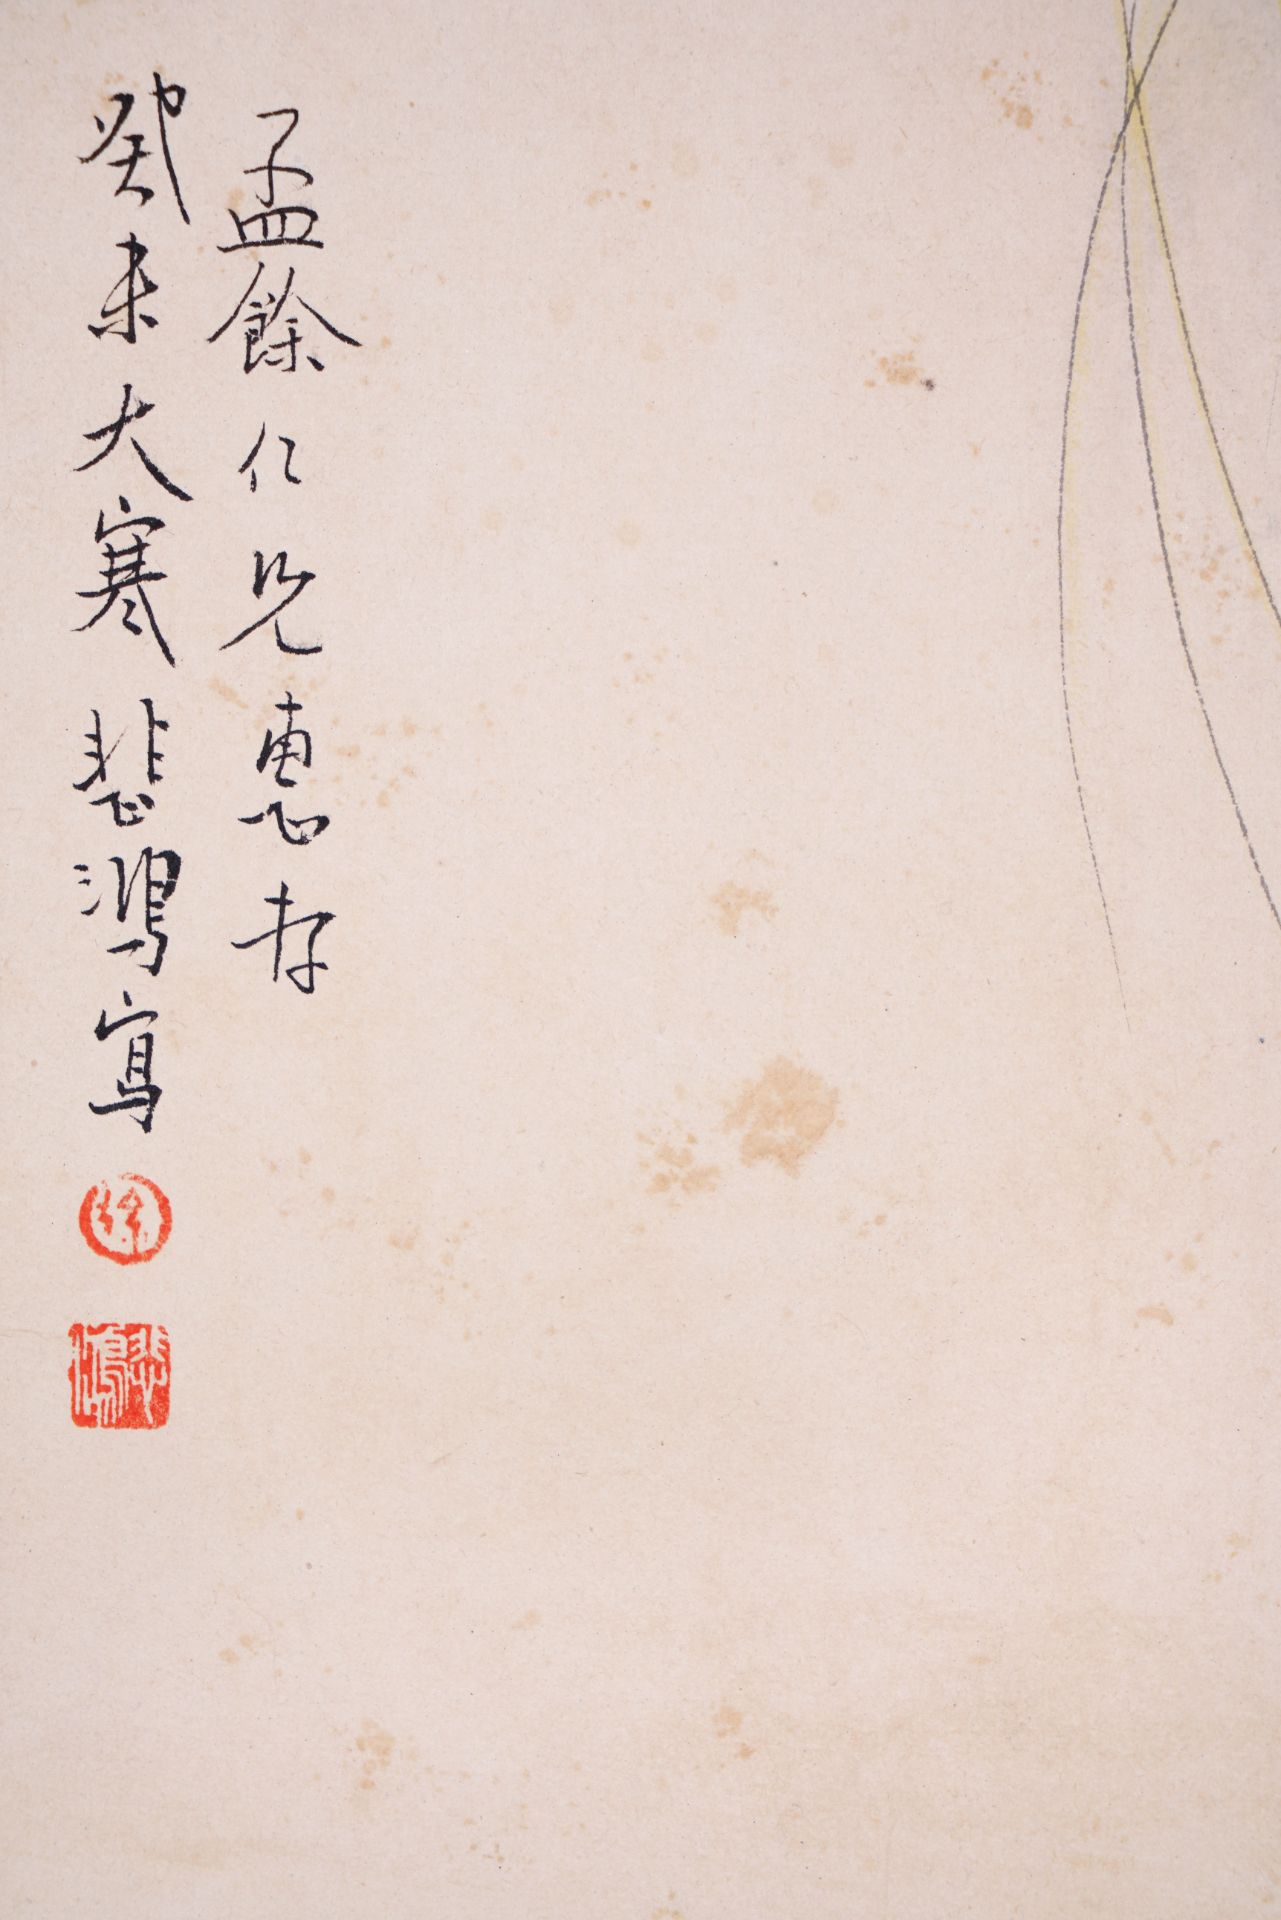 孟餘仁兄惠存
癸未大寒悲鴻寫
徐
悲鴻